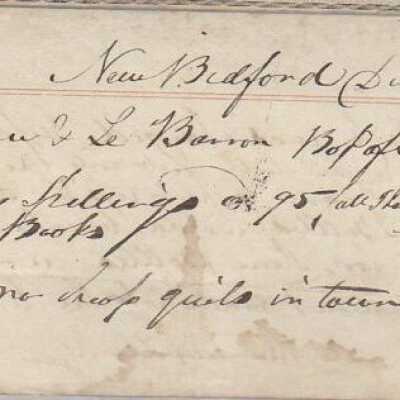 New Bedford
& Le Barron Bot of
Spellings @ 95, all the
Books
no cheap quils in town